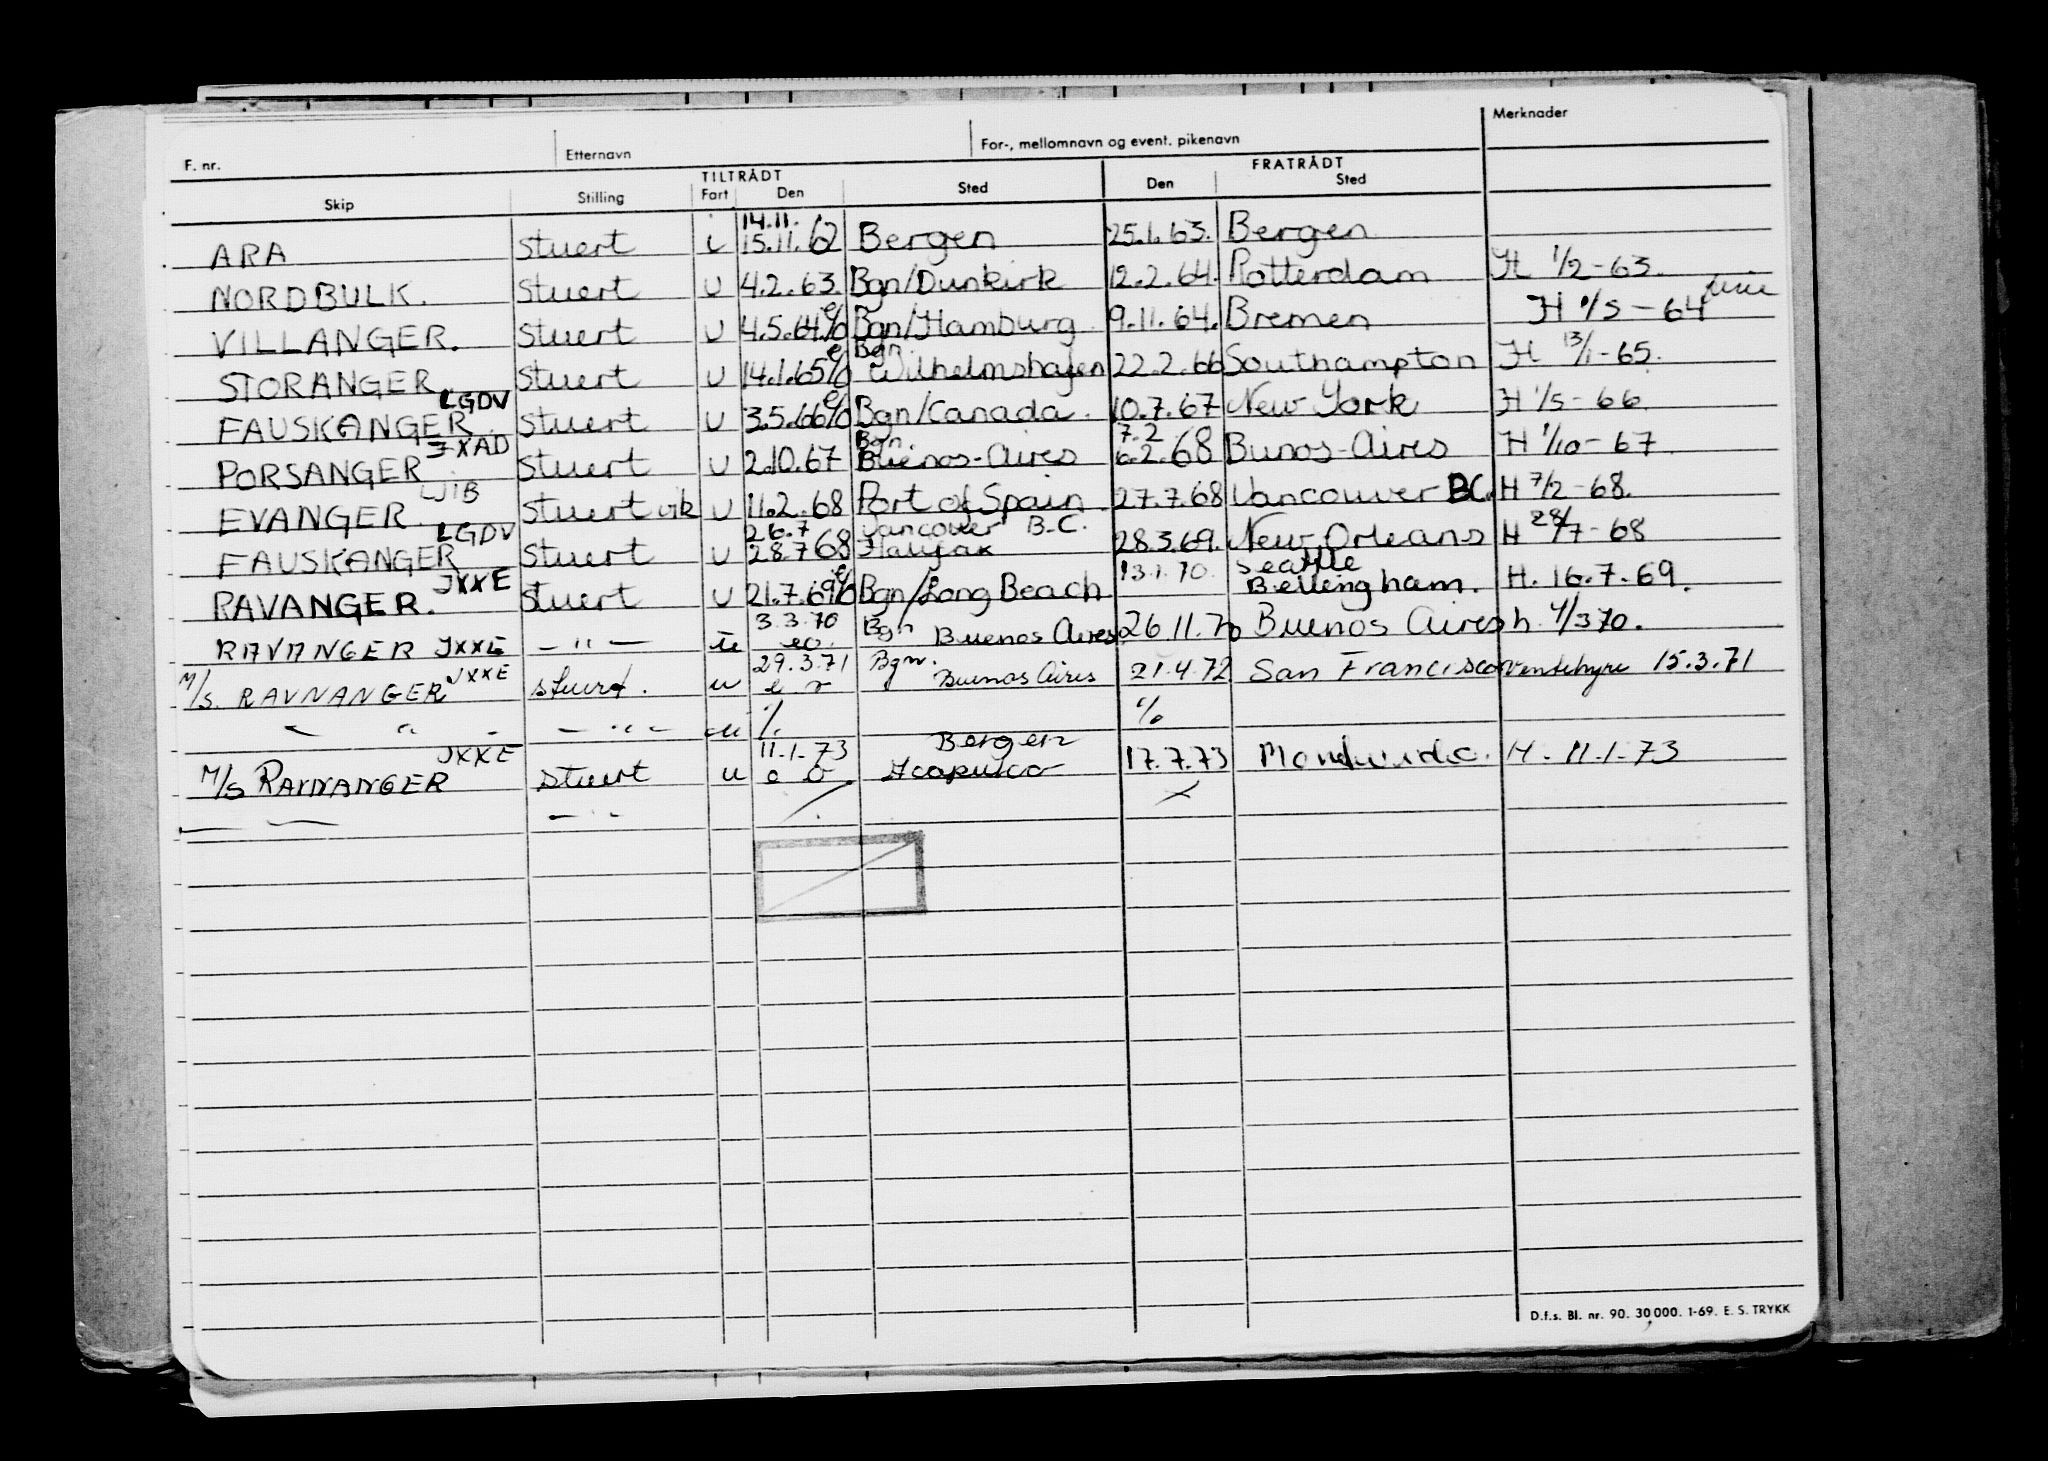 F. nr. Etternavn For-, mellomnavn og event. pikenavn Merknader
TILTRÅDT FRATRÅDT
Skip Stilling Fart Den Sted Den Sted
14.11.
ARA stuert i 15.11.62 Bergen 25.1.63. Bergen
NORDBULK. stuert U 4.2.63. Bgn/Dunkirk 12.2.64. Rotterdam H 1/2-63.
VILLANGER. stuert U 4.5.64 e/o Bgn/Hamburg 9.11.64. Bremen H 1/5-64
Bgn.
STORANGER stuert U 14.1.65 e/o Wilhelmshafen 22.2.66 Southampton H 13/1-65.
LGDV
FAUSKANGER stuert U 3.5.66 e/o Bgn/Canada. 10.7.67 New York H 1/5-66
JXAD Bgn. 7.2
PORSANGER stuert U 2.10.67 Buenos-Aires 6.2.68 Bunos-Aires H 1/10-67
LJIB
EVANGER. stuert vik U 11.2.68 Port of Spain 27.7.68 Vancouver BC. H 7/2-68.
LGDV 26.7 Vancouver B.C.
FAUSKANGER stuert U 28.7 68 Halifax 28.3.69. New Orleans H 28/7-68
JXXE 13.1.70. Seattle
RAVANGER. stuert U 21.7.69 e/o Bgn/Long Beach Bellingham. H. 16.7.69.
3.3.70 Bgn
RAVANGER JXXE - " - u eo. Buenos Aires 26.11.70 Buenos Aires h. 4/3 70.
JXXE 29.3.71 Bgn.
M/S. RAVNANGER stuert. u Buenos Aires 21.4.72 San Francisco ventehyre 15.3.71
" " - " - u % %
JXXE 11.1.73 Bergen
M/S RAVNANGER stuert u e o Acapulco 17.7.73 H. 11.1.73
D.f.s. Bl. nr. 90. 30 000. 1-69. E. S. TRYKK